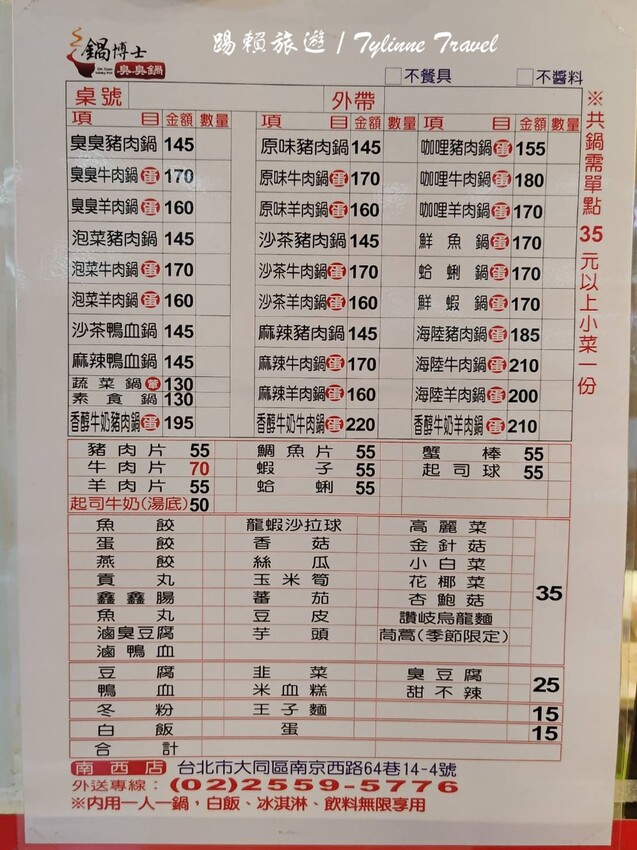 踢賴旅遊 / Tylinne Travel
鍋博士
臭臭鍋
不餐具 不醬料
桌號 外帶
項目 金額 數量 項目 金額 數量 項目 金額 數量
臭臭豬肉鍋 145 原味豬肉鍋 145 咖哩豬肉鍋蛋 155
臭臭牛肉鍋蛋 170 原味牛肉鍋蛋 170 咖哩牛肉鍋蛋 180
臭臭羊肉鍋蛋 160 原味羊肉鍋蛋 160 咖哩羊肉鍋蛋 170
泡菜豬肉鍋 145 沙茶豬肉鍋 145 鮮魚鍋蛋 170
泡菜牛肉鍋蛋 170 沙茶牛肉鍋蛋 170 蛤蜊鍋蛋 170
泡菜羊肉鍋蛋 160 沙茶羊肉鍋蛋 160 鮮蝦鍋蛋 170
沙茶鴨血鍋 145 麻辣豬肉鍋 145 海陸豬肉鍋蛋 185
麻辣鴨血鍋 145 麻辣牛肉鍋蛋 170 海陸牛肉鍋蛋 210
蔬菜鍋 130 麻辣羊肉鍋蛋 160 海陸羊肉鍋蛋 200
素食鍋 130
香醇牛奶豬肉鍋蛋 195 香醇牛奶牛肉鍋蛋 220 香醇牛奶羊肉鍋蛋 210
※共鍋需單點35元以上小菜一份
豬肉片 55 鯛魚片 55 蟹棒 55
牛肉片 70 蝦子 55 起司球 55
羊肉片 55 蛤蜊 55
起司牛奶(湯底) 50
魚餃 龍蝦沙拉球 高麗菜
蛋餃 香菇 金針菇
燕餃 絲瓜 小白菜
貢丸 玉米筍 花椰菜
鑫鑫腸 蕃茄 杏鮑菇 35
魚丸 豆皮 讚岐烏龍麵
滷臭豆腐 芋頭 茼蒿(季節限定)
滷鴨血
豆腐 韭菜 臭豆腐
鴨血 米血糕 甜不辣 25
冬粉 王子麵 15
白飯 蛋 15
合計
南西店 台北市大同區南京西路64巷14-4號
外送專線：(02)2559-5776
※內用一人一鍋，白飯、冰淇淋、飲料無限享用